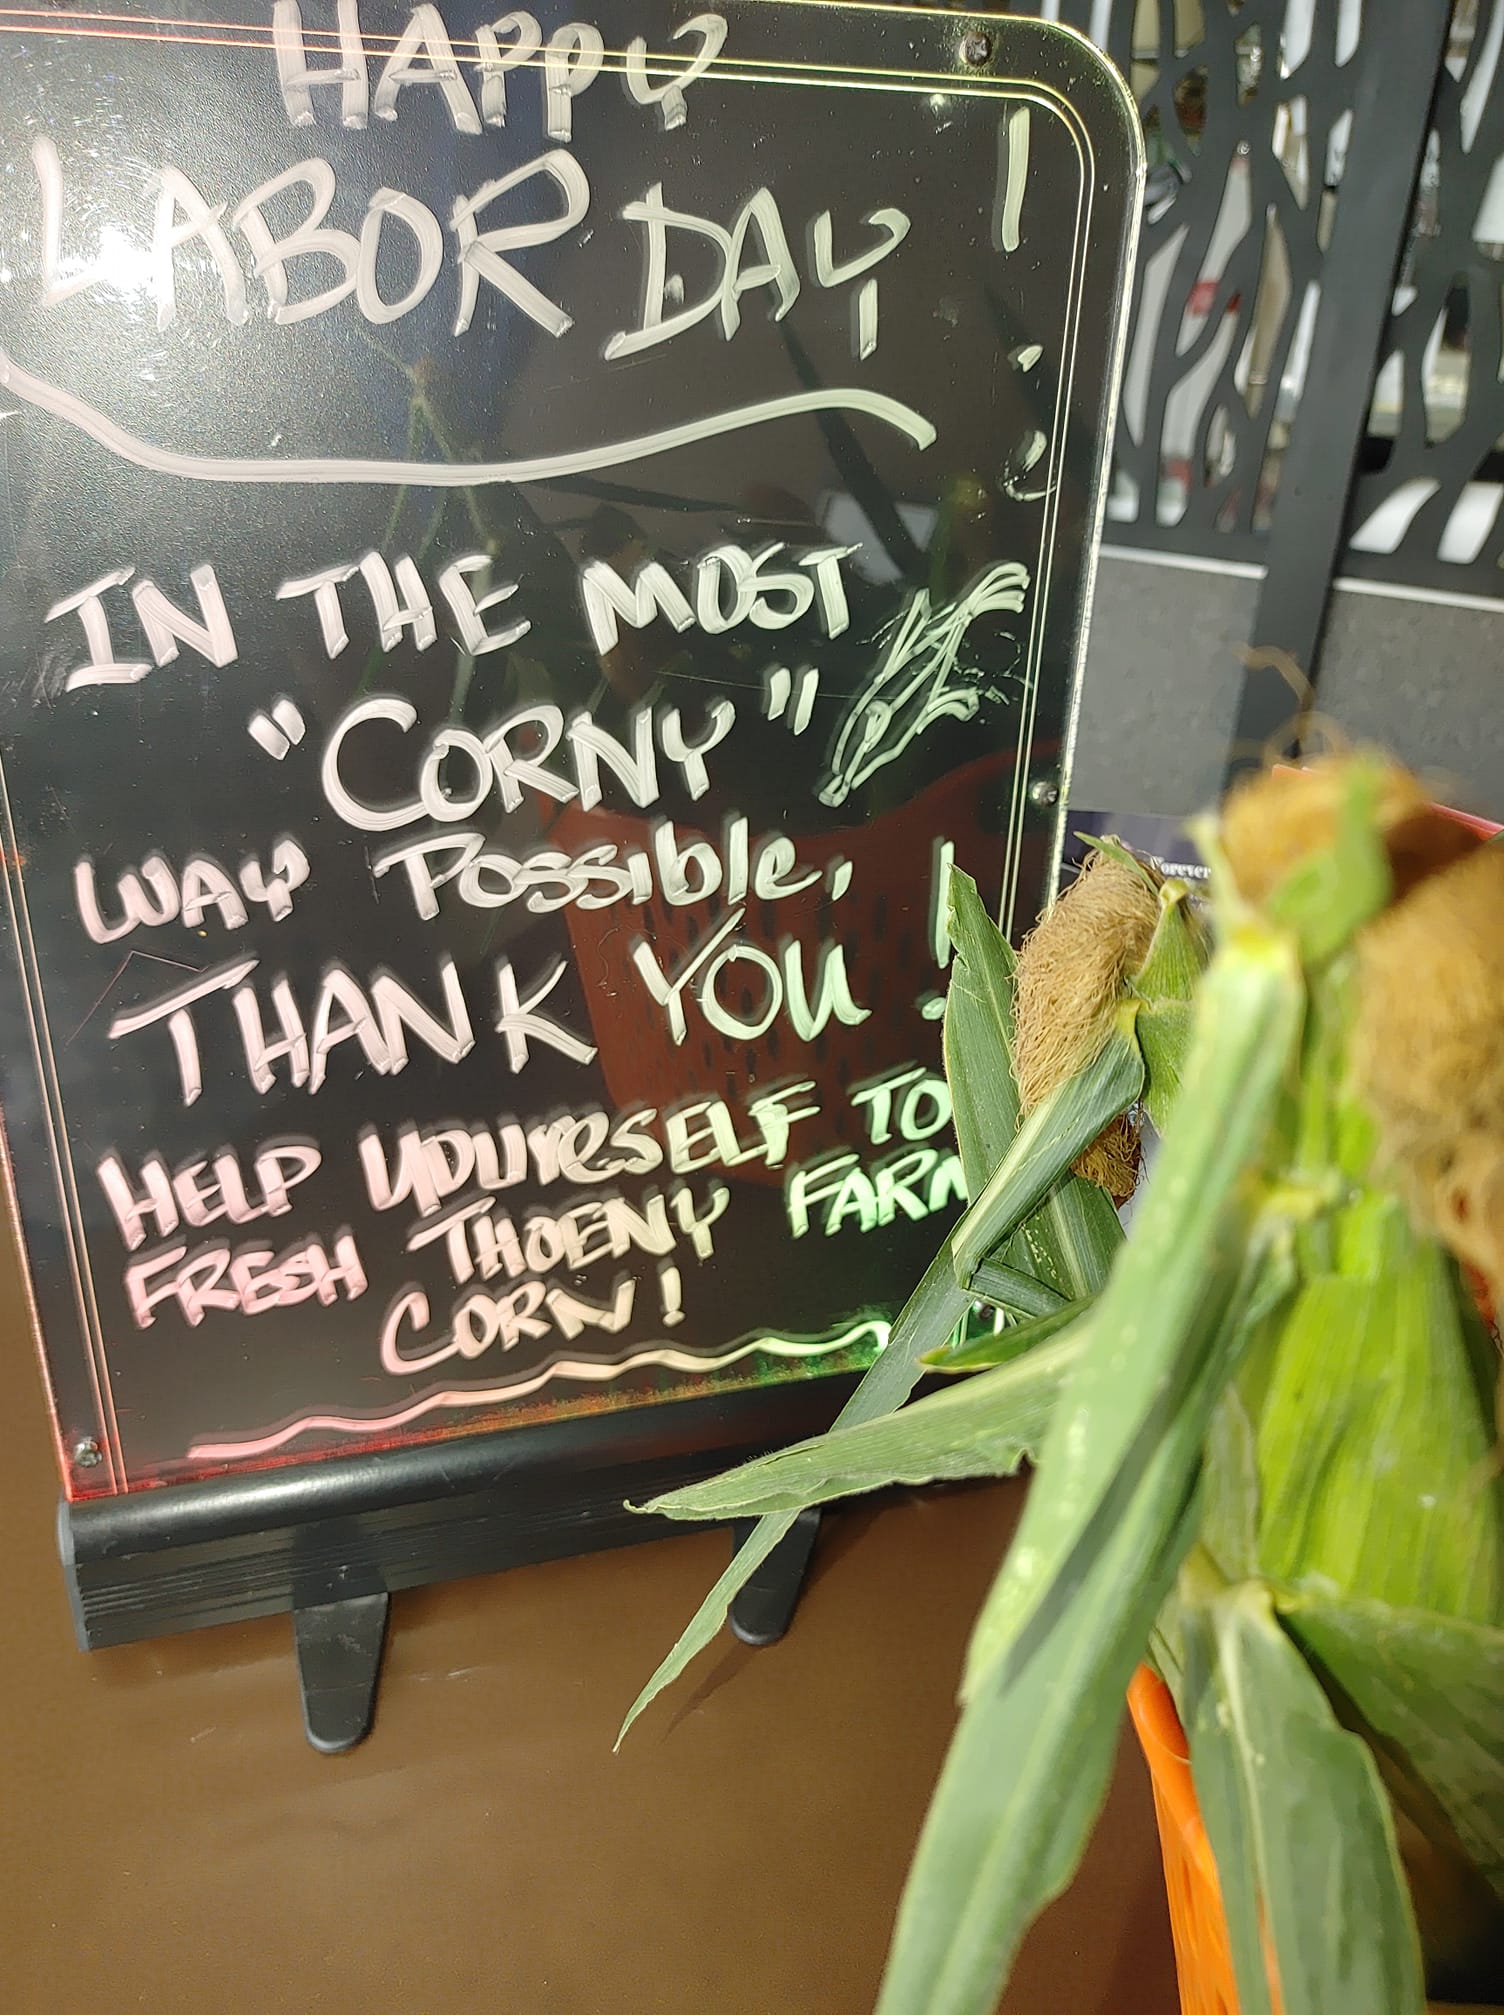 HAPPY
LABOR DAY !
IN THE MOST
"CORNY"
WAY POSSible,
THANK YOU !
HELP YOUreSELF TO
FRESH THOENY FARM
CORN!
orever